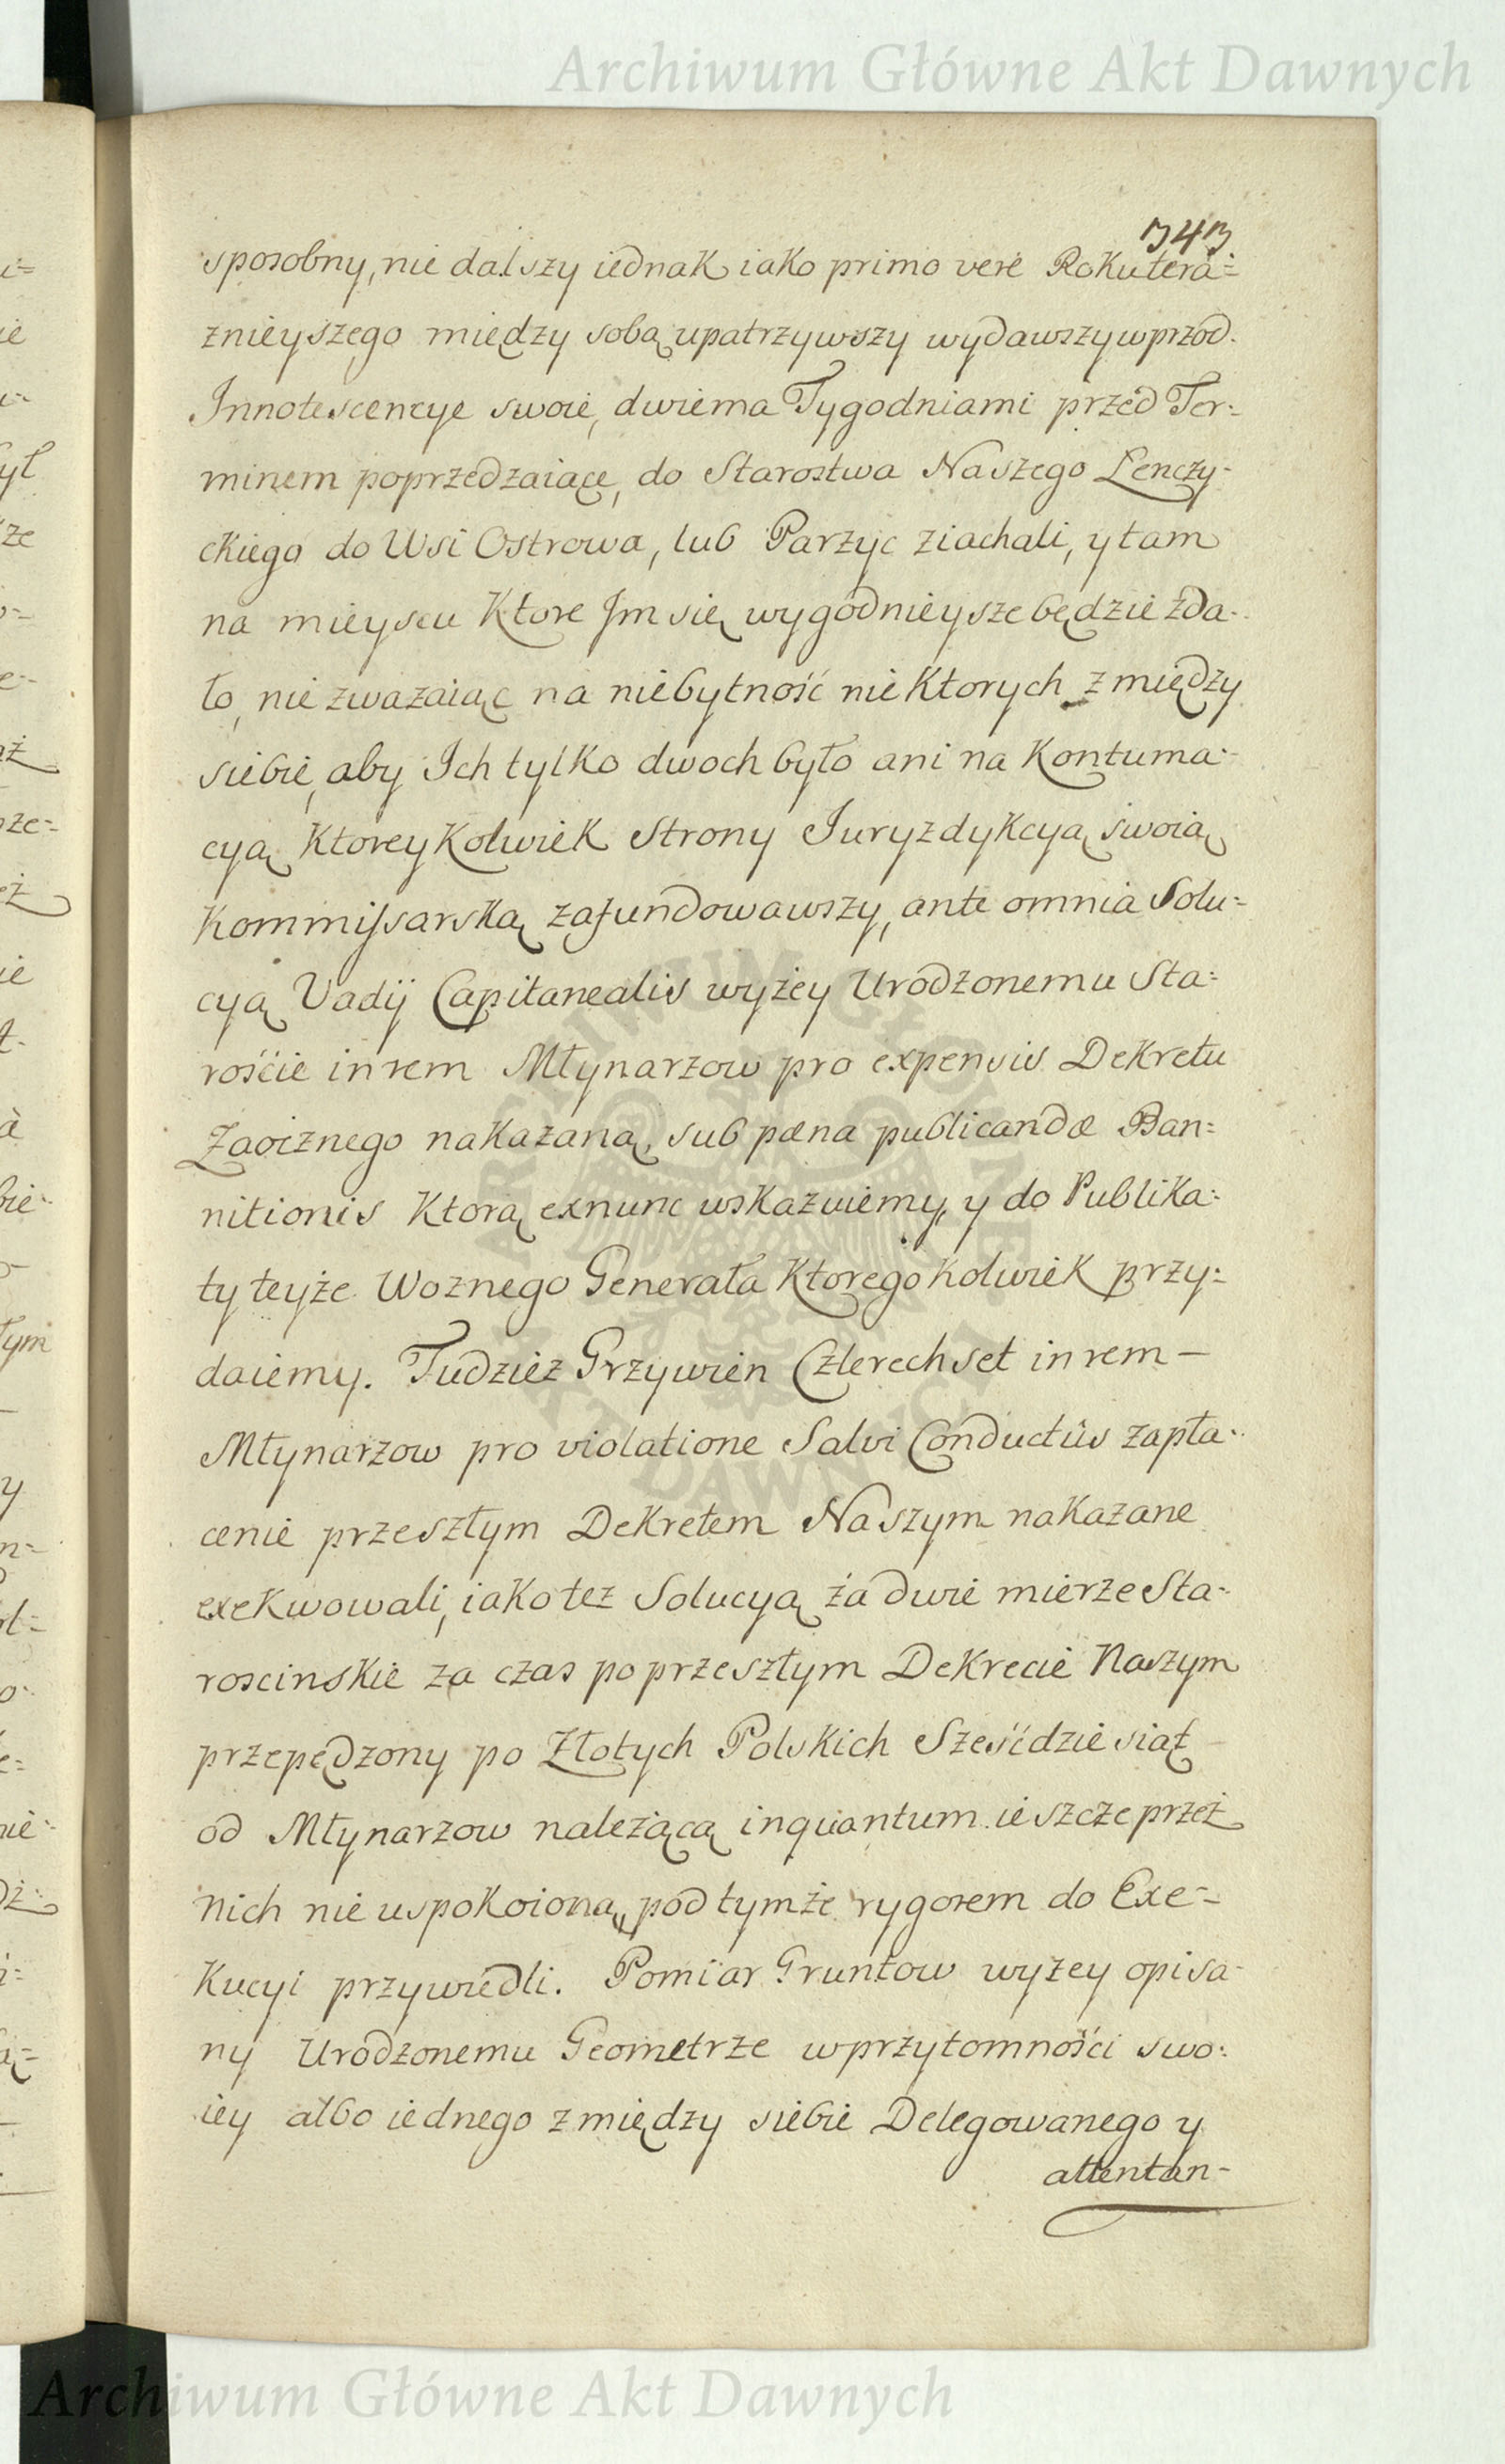 Archiwum Główne Akt Dawnych
343
sposobny, nie dalszy iednak iako primo vere Roku tera=
znieyszego między sobą upatrzywszy wydawszy wprzod
Innotescencye swoie, dwiema Tygodniami przed Ter=
minem poprzedzaiące, do Starostwa Naszego Lenczy=
ckiego do Wsi Ostrowa, lub Parzyc ziachali, y tam
na mieyscu Ktore Jm się wygodnieysze będzie zda=
ło, nie zwazaiąc na niebytność nieKtorych z między
siebie, aby Ich tylko dwoch było ani na Kontuma=
cyą KtoreyKolwiek Strony Juryzdykcyą swoią
Kommissarską zafundowawszy, ante omnia Solu=
cyą Vadij Capitanealis wyżey Urodzonemu Sta=
rośćie in rem Młynarzow pro expensis Dekretu
Zaocznego nakazaną, sub pæna publicandæ Ban=
nitionis Ktorą exnunc wskazuiemy, y do Publika=
ty teyże Woznego Generała Ktoregokolwiek przy=
daiemy. Tudziez Grzywien Czterechset in rem —
Młynarzow pro violatione Salvi Conductûs zapła=
cenie przeszłym Dekretem Naszym nakazane
exekwowali, iako tez Solucyą za dwie mierze Sta=
roscinskie za czas po przeszłym Dekrecie Naszym
przepędzony po Złotych Polskich Sześćdziesiąt
od Młynarzow należącą inquantum ieszcze przez
nich nie uspokoioną, pod tymże rygorem do Exe=
Kucyi przywiedli. Pomiar Gruntow wyżey opisa=
ny Urodzonemu Geometrze w przytomności swo=
iey albo iednego z między siebie Delegowanego y
attentan=
Archiwum Główne Akt Dawnych